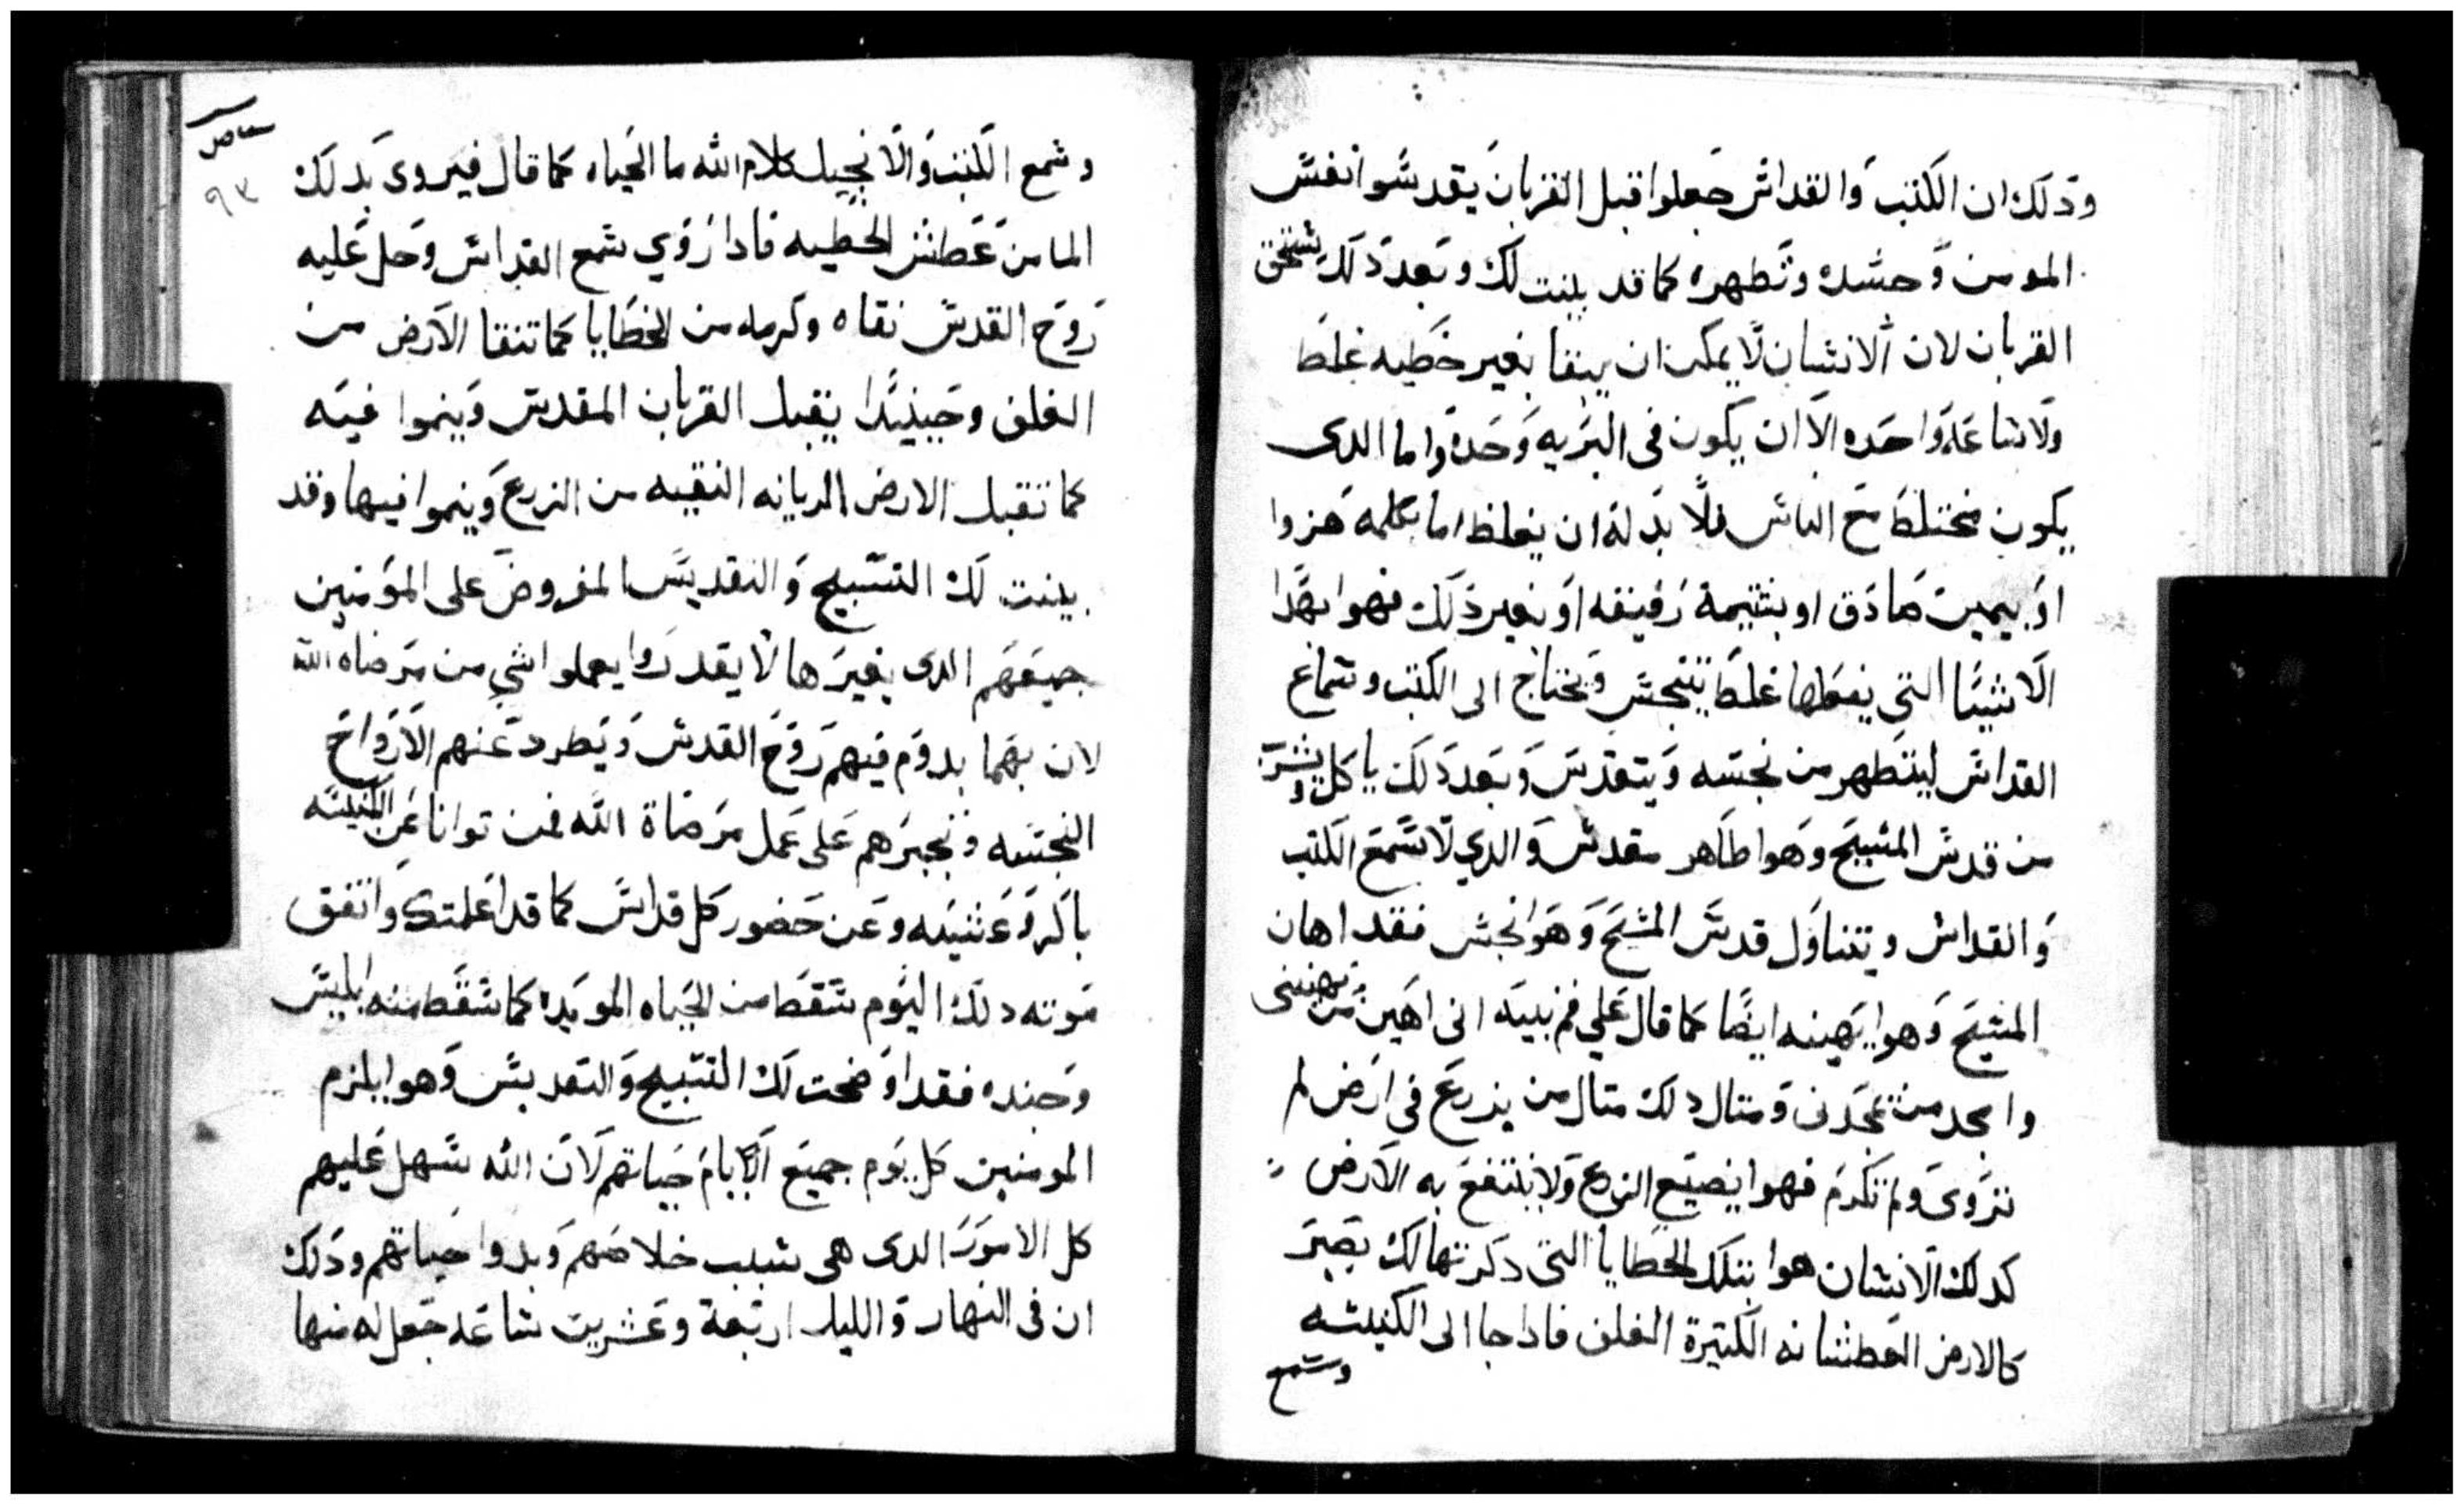 ودلك ان الكتب والقداس جعلوا قبل القربان يقدسوا نفس
المومن وجسده وتطهره كما قد بينت لك وبعد دلك يستحق
القربان لان الانسان لا يمكن ان يبقا بغير خطيه غلط
ولا ساعه واحده الا ان يكون فى البريه وحده واما الدى
يكون مختلط مع الناس فلا بد له ان يغلط اما بكلمه هزوا
او بيمين صادق او بشيمة رفيقه او بغير ذلك فهوا بهدا
الاشيا التي يفعلها غلط يتنجس ويحتاج الى الكتب وسماع
القداس ليتطهر من نجسه ويتقدس وبعد دلك ياكل ويشرب
من قدس المسيح وهوا طاهر مقدس والدي لا سمع الكتب
والقداس ويتناول قدس المسيح وهوا نجس فقد اهان
المسيح وهوا يهينه ايضا كما قال علي فم نبيه انى اهين من يهيننى
وامجد من يمجدنى ومتال دلك متال من يزرع فى ارض لم
تروى ولم تكرم فهوا يضيع الزرع ولا ينتفع به الارض
كدلك الانسان هوا بتلك الخطايا التى دكرتها لك يصير
كالارض العطشانه الكتيرة الغلف فادا جا الى الكنيسه
وسمع
٩٣
وسمع الكتب والانجيل كلام الله ما الحياه كما قال فيروى بدلك
الما من عطش الخطيه فادا روي سمع القداس وحل عليه
روح القدس نقاه وكرمه من الخطايا كما تنقا الارض من
الغلف وحينيدا يقبل القربان المقدس وينموا فيه
كما تقبل الارض الريانه النقيه من الزرع وينموا فيها وقد
بينت لك التسبيح والتقديس المفروض على المؤمنين
جميعهم الدى بغيرها لا يقدروا يعملوا شي من مرضاه الله
لان بهما يدوم فيهم روح القدس ويطرد عنهم الارواح
النجسه ونجبرهم على عمل مرضاة الله فمن توانا عن الكنيسه
باكر وعشيه وعن حضور كل قداس كما قد اعلمتك واتفق
موته دلك اليوم سقط من الحياه الموبده كما سقط منه ابليس
وجنده فقد اوضحت لك التسبيح والتقديس وهوا يلزم
المومنين كل يوم جميع الايام حياتهم لان الله سهل عليهم
كل الامور الدى هى سبب خلاصهم وبدوا حياتهم وذلك
ان فى النهار والليل اربعة وعشرين ساعه جعل له منها